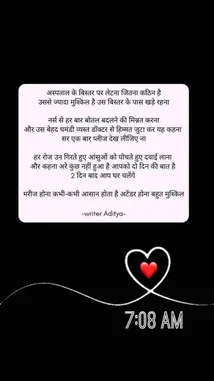 अस्पताल के बिस्तर पर लेटना जितना कठिन है
उससे ज्यादा मुश्किल है उस बिस्तर के पास खड़े रहना
नर्स से हर बार बोतल बदलने की मिन्नत करना
और उस बेहद घमंडी व्यस्त डॉक्टर से हिम्मत जुटा कर यह कहना
सर एक बार प्लीज देख लीजिए ना
हर रोज उन गिरते हुए आंसुओं को पोचते हुए दवाई लाना
और कहना अरे कुछ नहीं हुआ है आपको दो दिन की बात है
2 दिन बाद आप घर चलेंगे
मरीज होना कभी-कभी आसान होता है अटेंडर होना बहुत मुश्किल
-writer Aditya-
7:08 AM